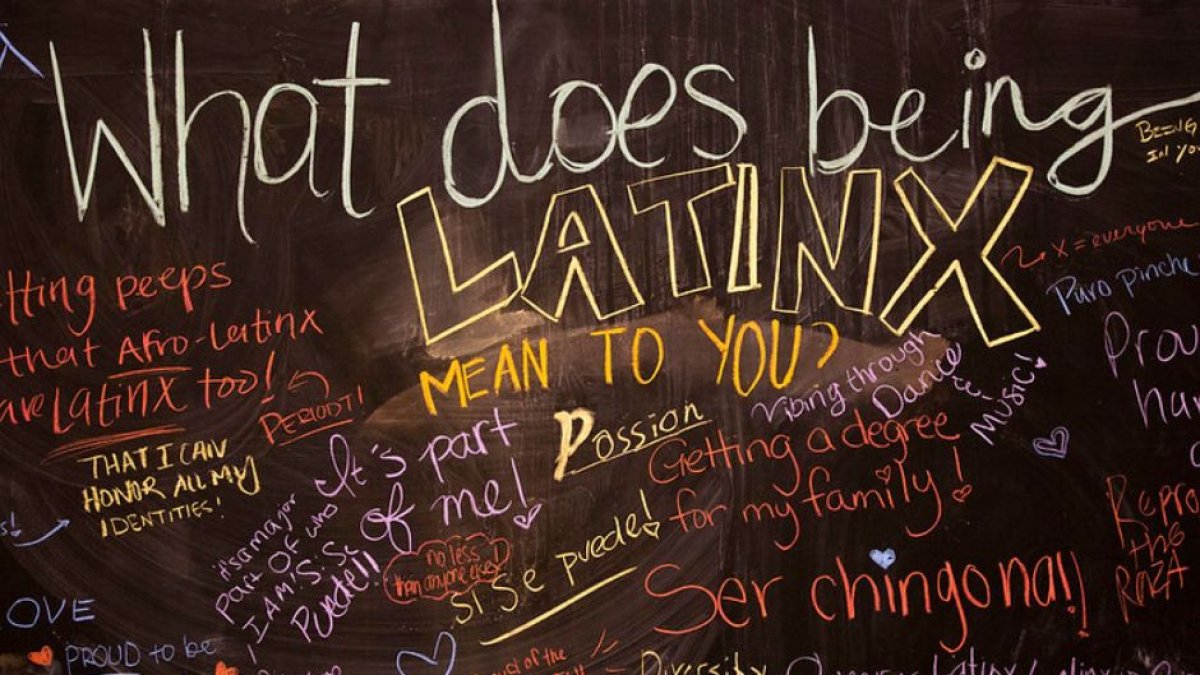 What does being
LATINX
MEAN TO YOU?
BEING
IN YOU
x = everyone
Puro pinche
tting peeps
that Afro-Latinx
are Latinx too!
PERIODT!
THAT I CAN
HONOR ALL MY
IDENTITIES!
It's part
of me!
Passion
Vibing through
Dance
&
Music!
Getting a degree
for my family!
it's a major
part of who
I AM! Si Se
Puede!!
no less
than anyone else
SI Se puede!
Ser chingona!!
Prou
ha
Repre
the
RAZA
OVE
PROUD to be
d of the
Diversity